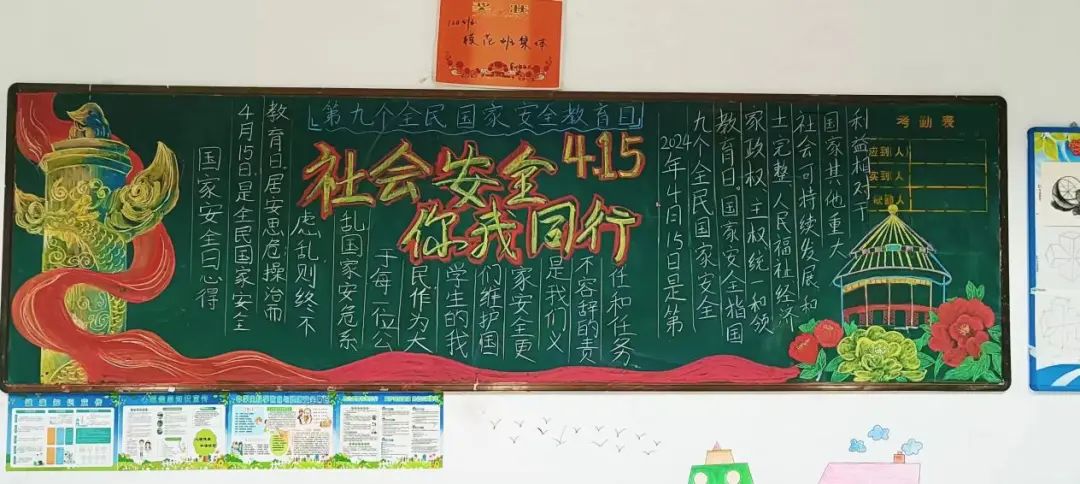 奖 状
模范班集体
第九个全民国家安全教育日
社会安全 4.15
你我同行
国家安全日心得
4月15日是全民国家安全
教育日。居安思危操治而
虑乱则终不
乱国家安危系
于每一位公
民作为大
学生的我
们维护国
家安全更
是我们义
不容辞的责
任和任务
2024年4月15日是第
九个全民国家安全
教育日。国家安全指国
家政权、主权统一和领
土完整人民福祉经济
社会可持续发展和
国家其他重大
利益相对于
考勤表
应到(人)
实到(人)
缺勤人
知识宣传
心理健康知识宣传